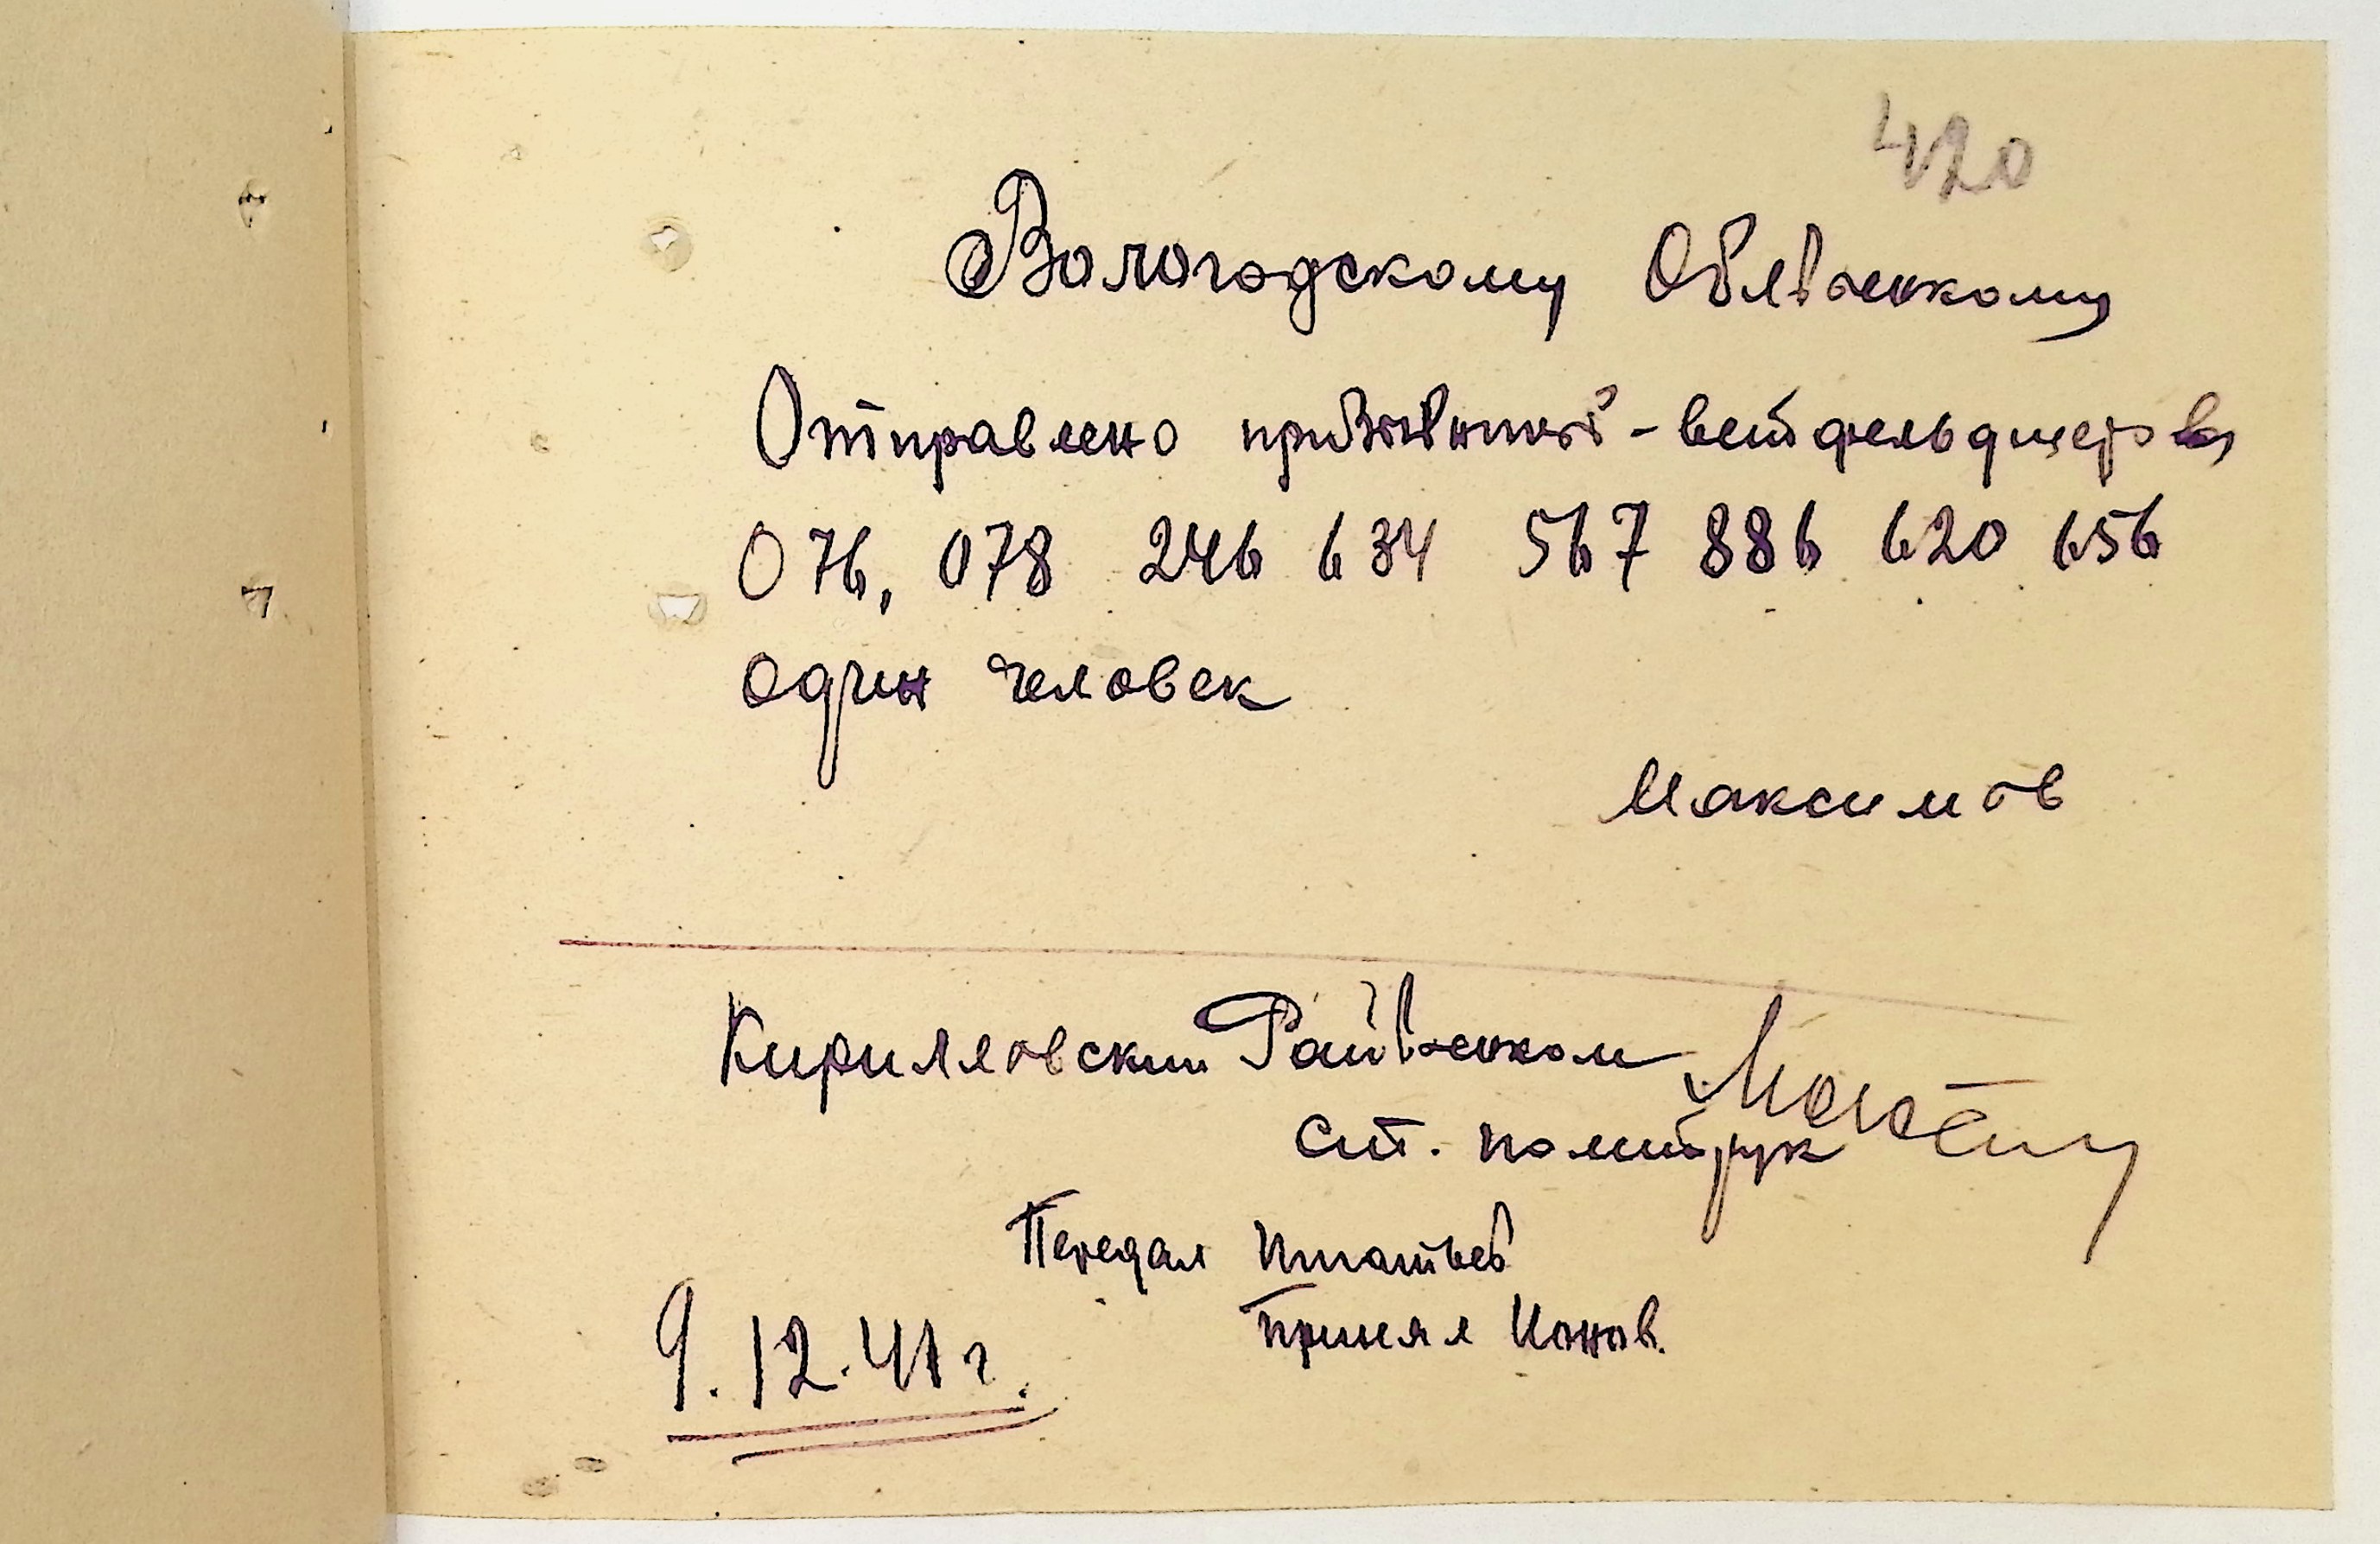 420
Вологодскому Облвоенкому
Отправлено призывной - ветфельдшеров
076, 078 246 634 567 886 620 656
один человек
Максимов
Кирилловский Райвоенком
ст. политрук
Передал Игнатьев
Принял Ионов.
9.12.41 г.